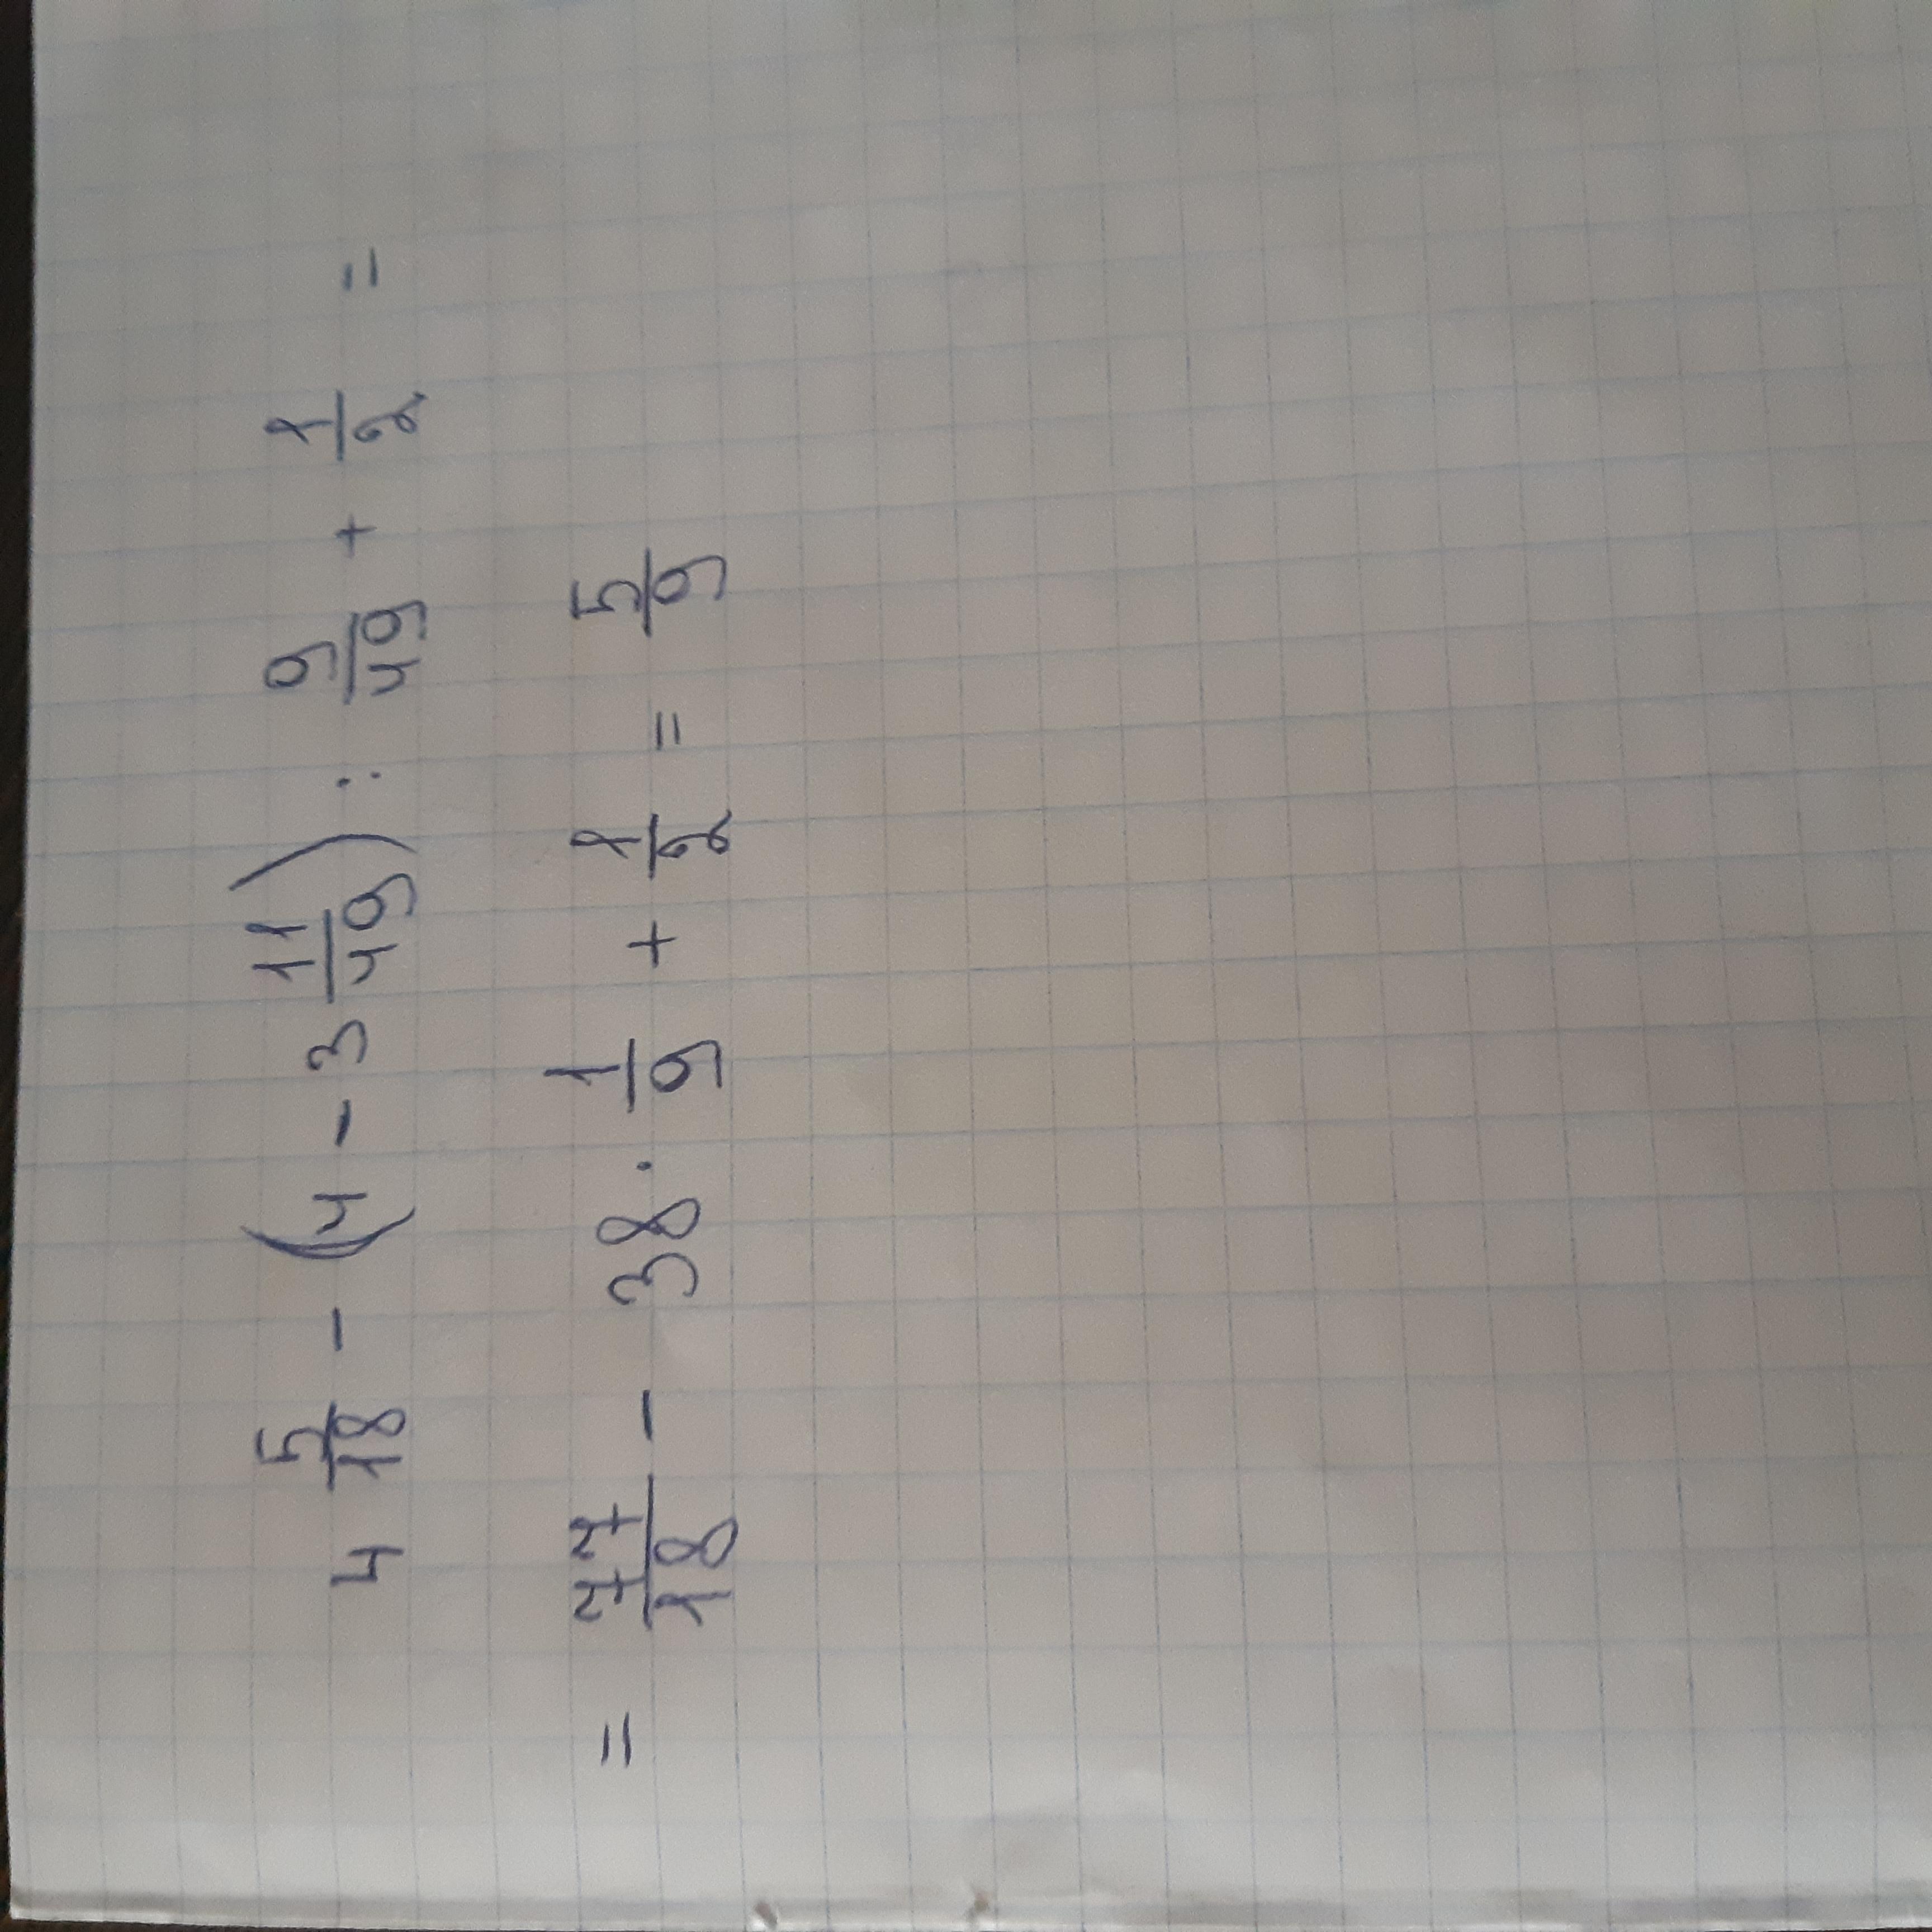 4 5/18 - (4 - 3 11/49) : 9/49 + 1/2 =
= 77/18 - 38 · 1/9 + 1/2 = 5/9